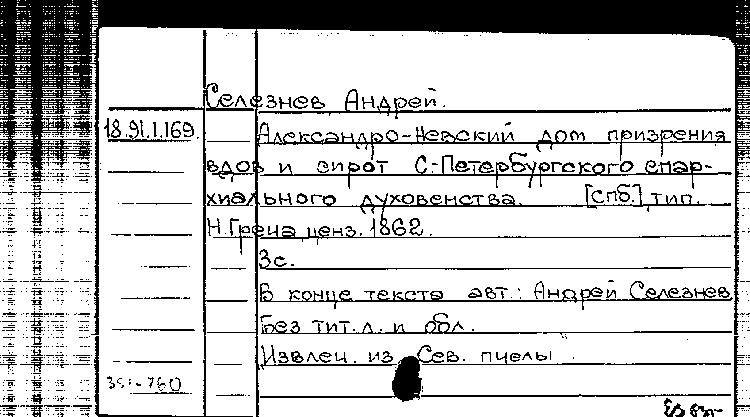 Селезнев Андрей.
18.91.1.169. Александро-Невский дом призрения
вдов и сирот С.-Петербургского епар-
хиального духовенства. [Спб.] тип.
Н. Греча, ценз. 1862.
3с.
В конце текста авт.: Андрей Селезнев
Без тит. л. и обл.
Извлеч. из Сев. пчелы